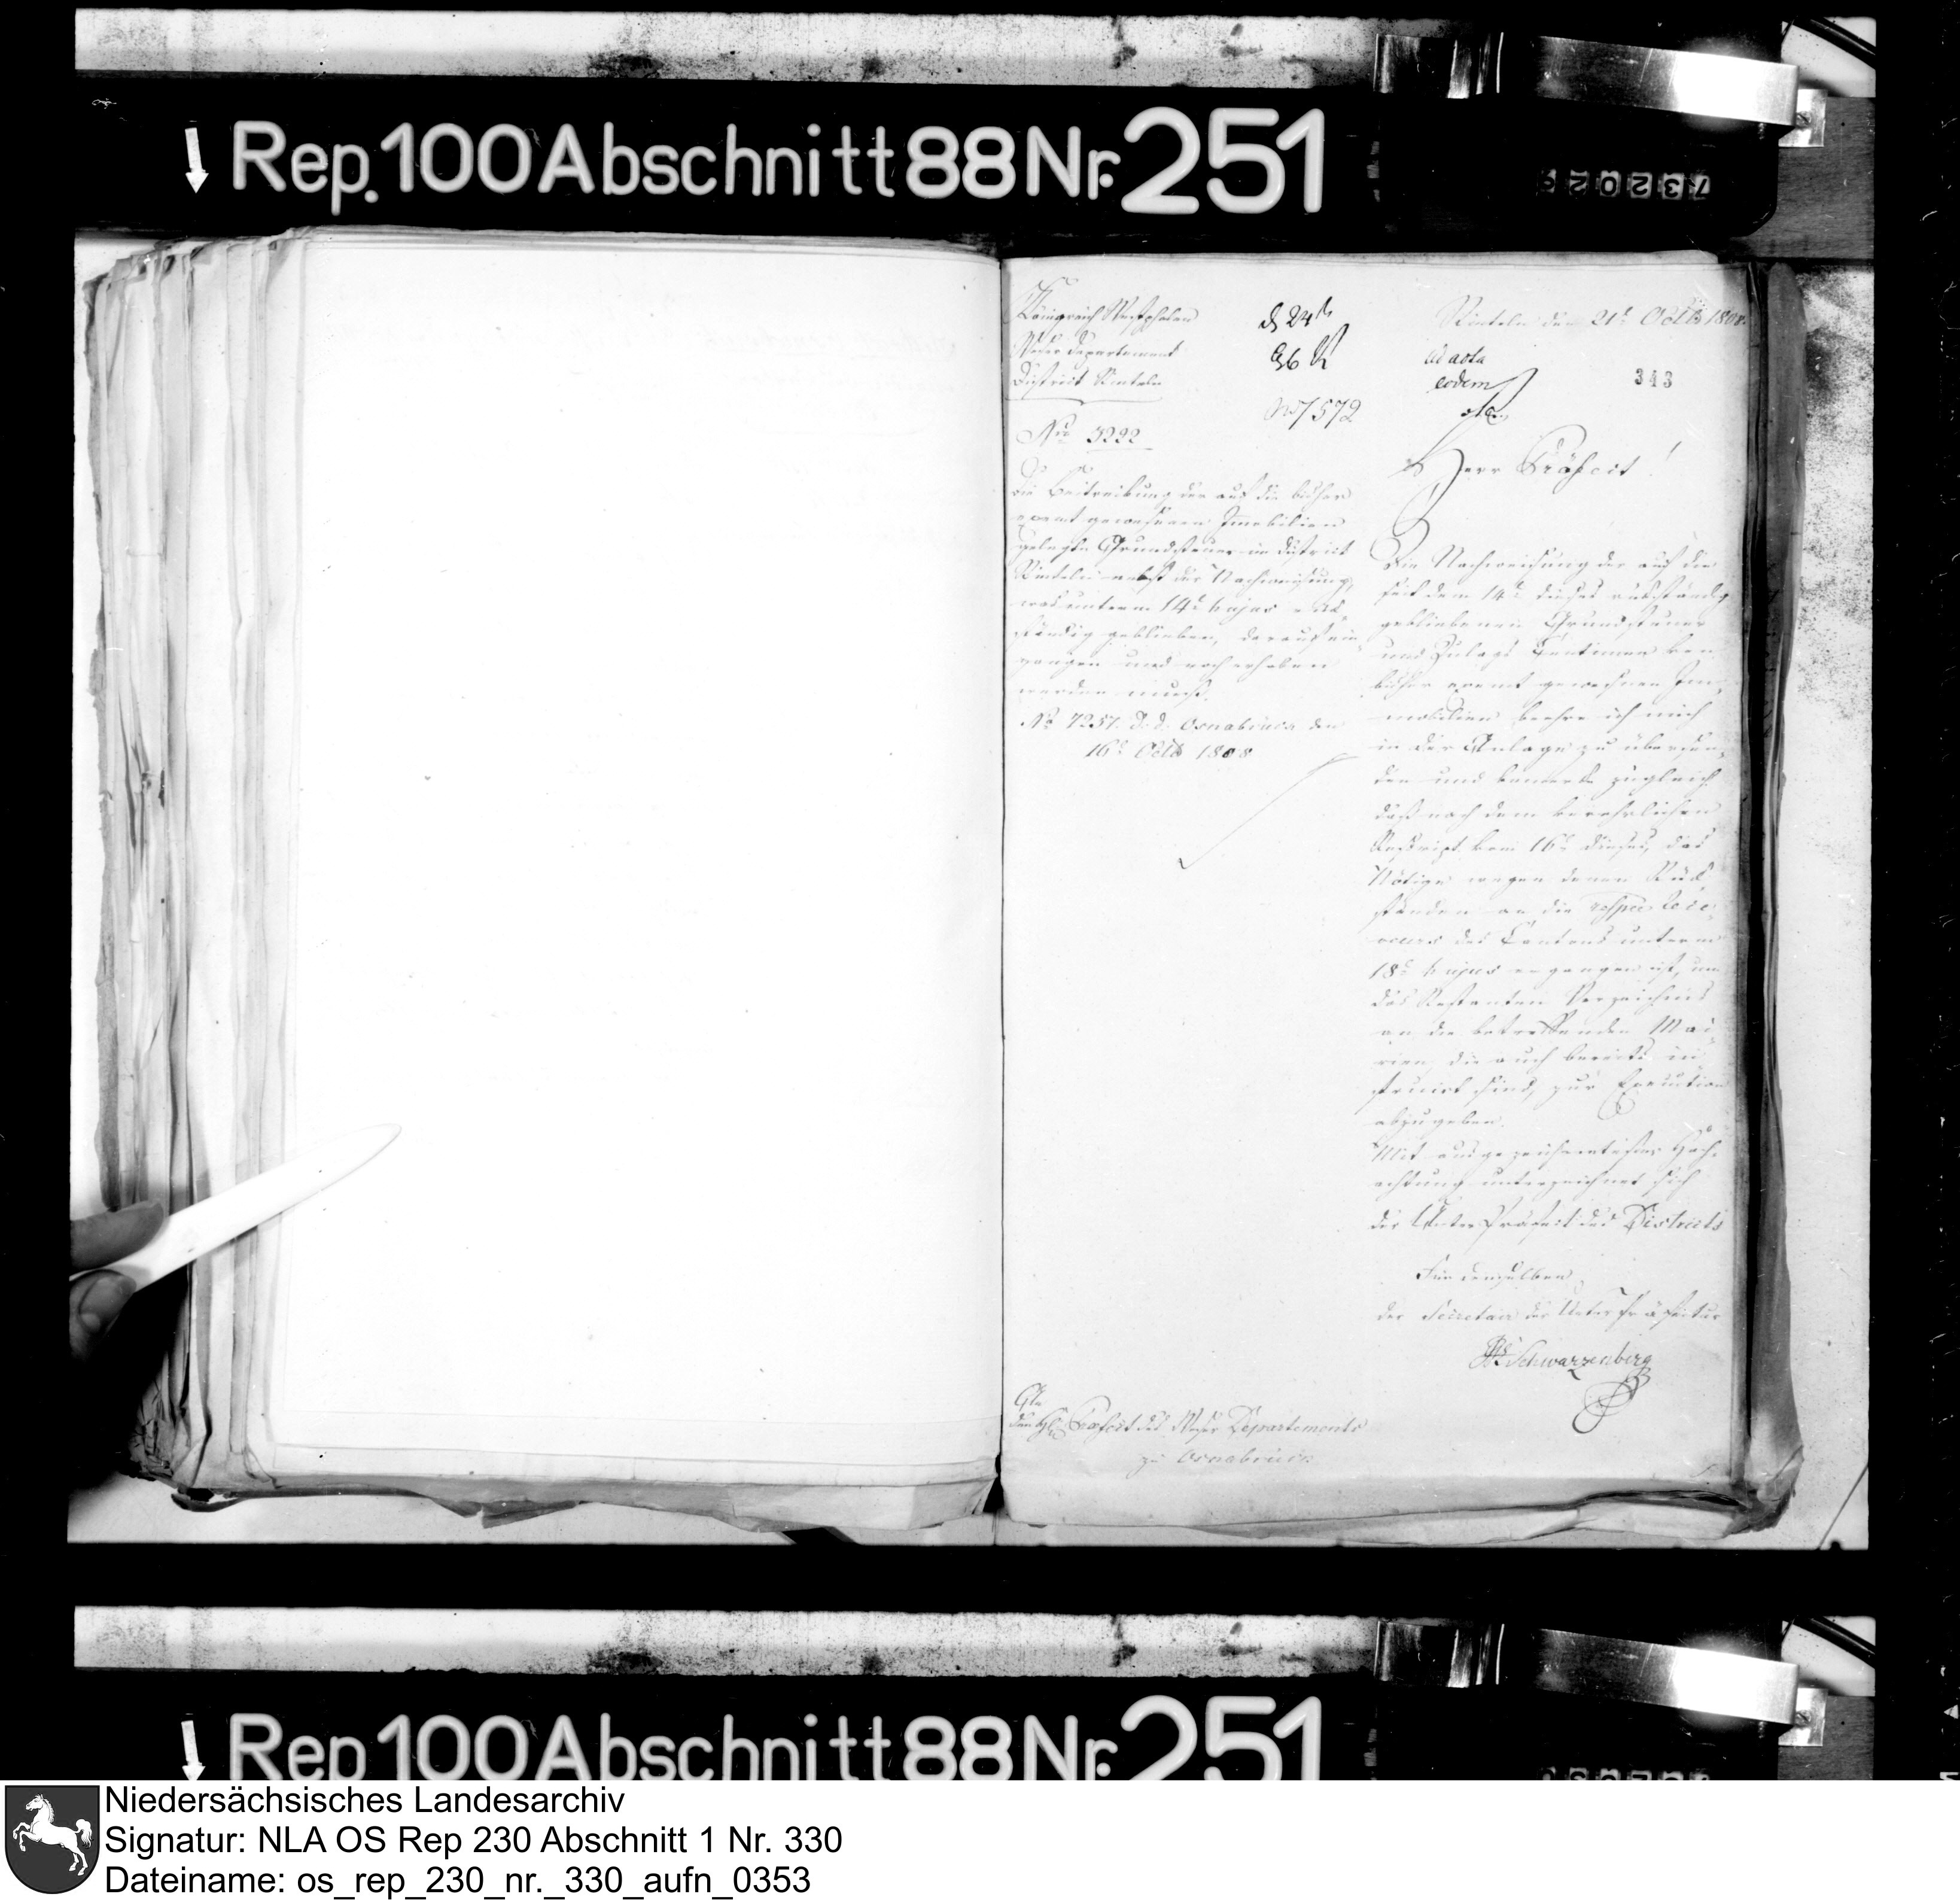 Rep. 100 Abschnitt 88 Nr. 251
Königreich Westphalen
Weser Departement
District Rinteln
No 3222
24t
No 7572
Rinteln den 21t Octb 1808.
ad acta
eodem
343
Herr Präfect!
Die Beitreibung der auf die bisher
exemt gewesenen Immobilien
gelegte Grundsteuer im District
Rinteln nebst der Nachweisung,
was unterm 14t hujus rück
ständig geblieben, darauf ein
gangen und noch erhoben
werden muß.
No 7257. d. d. Osnabrück den
16t Octb 1808
Die Nachweisung der auf die
seit dem 14t dieses rückständig
gebliebenen Grundsteuer
und Zulags Centimen von
bisher exemt gewesenen Im
mobilien beehre ich mich
in der Anlage zu übersen
den und bemerke zugleich
daß nach dem verehrlichen
Rescript vom 16t dieses, das
Nötige wegen denen Rück
ständen an die respec Rece
veurs des Cantons unterm
18t hujus ergangen ist, um
das Restanten Verzeichnis
an die betreffenden Mai
rien, die auch bereits in
struirt sind, zur Execution
abzugeben.
Mit ausgezeichnetester Hoch
achtung unterzeichnet sich
der Unter Präfect des Districts
Für denselben
der Secretair der Unter Präfectur
Schwarzenberg
den Hn Präfect des Weser Departements
zu Osnabrück
Rep 100 Abschnitt 88 Nr. 251
Niedersächsisches Landesarchiv
Signatur: NLA OS Rep 230 Abschnitt 1 Nr. 330
Dateiname: os_rep_230_nr._330_aufn_0353